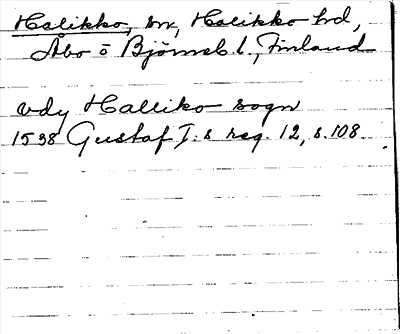 Halikko, sn, Halikko hd,
Åbo o Björneb. l., Finland
vdy Halliko sogn
1538 Gustaf I:s reg. 12, s. 108